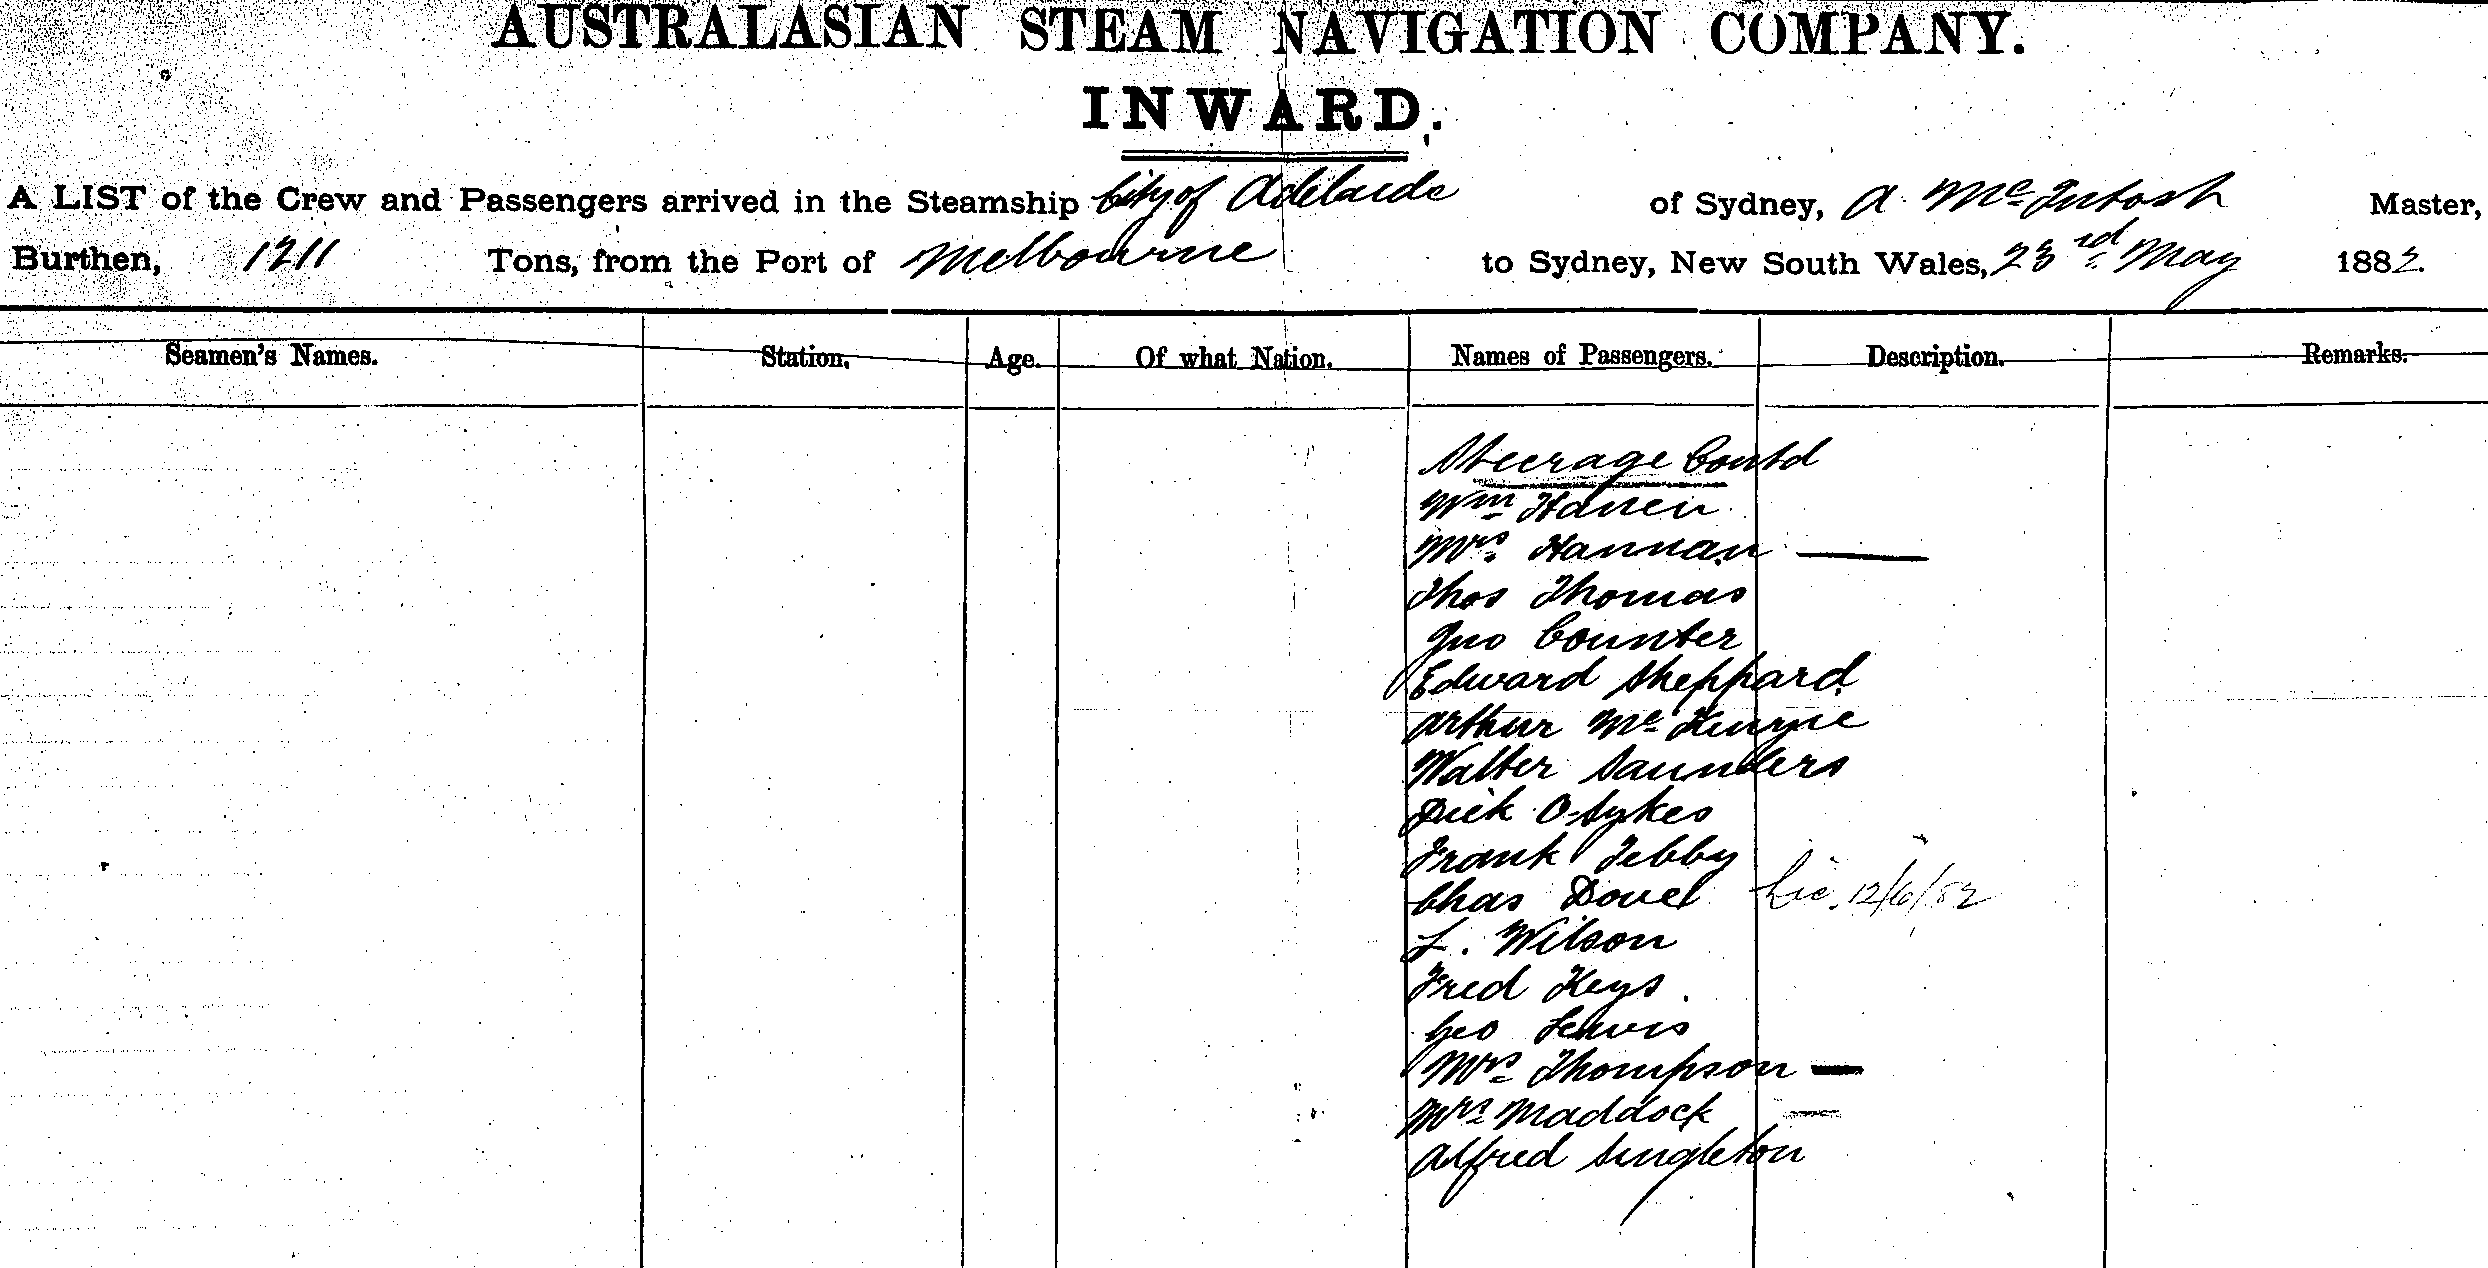 AUSTRALASIAN STEAM NAVIGATION COMPANY.
INWARD.
A LIST of the Crew and Passengers arrived in the Steamship City of Adelaide of Sydney, A. McIntosh Master,
Burthen, 1211 Tons, from the Port of Melbourne to Sydney, New South Wales, 23rd May 1882.
Seamen's Names. Station. Age. Of what Nation. Names of Passengers. Description. Remarks.
Steerage Contd
Wm
Mrs Hannan —
Thos Thomas
Jno Counter
Edward Sheppard
Arthur
Walter Saunders
Dick O Sykes
Frank Tebby
Chas Lic. 12/6/82
L. Wilson
Fred Keys.
Geo Lewis
Mrs Thompson —
Mrs Maddock —
Alfred Singleton